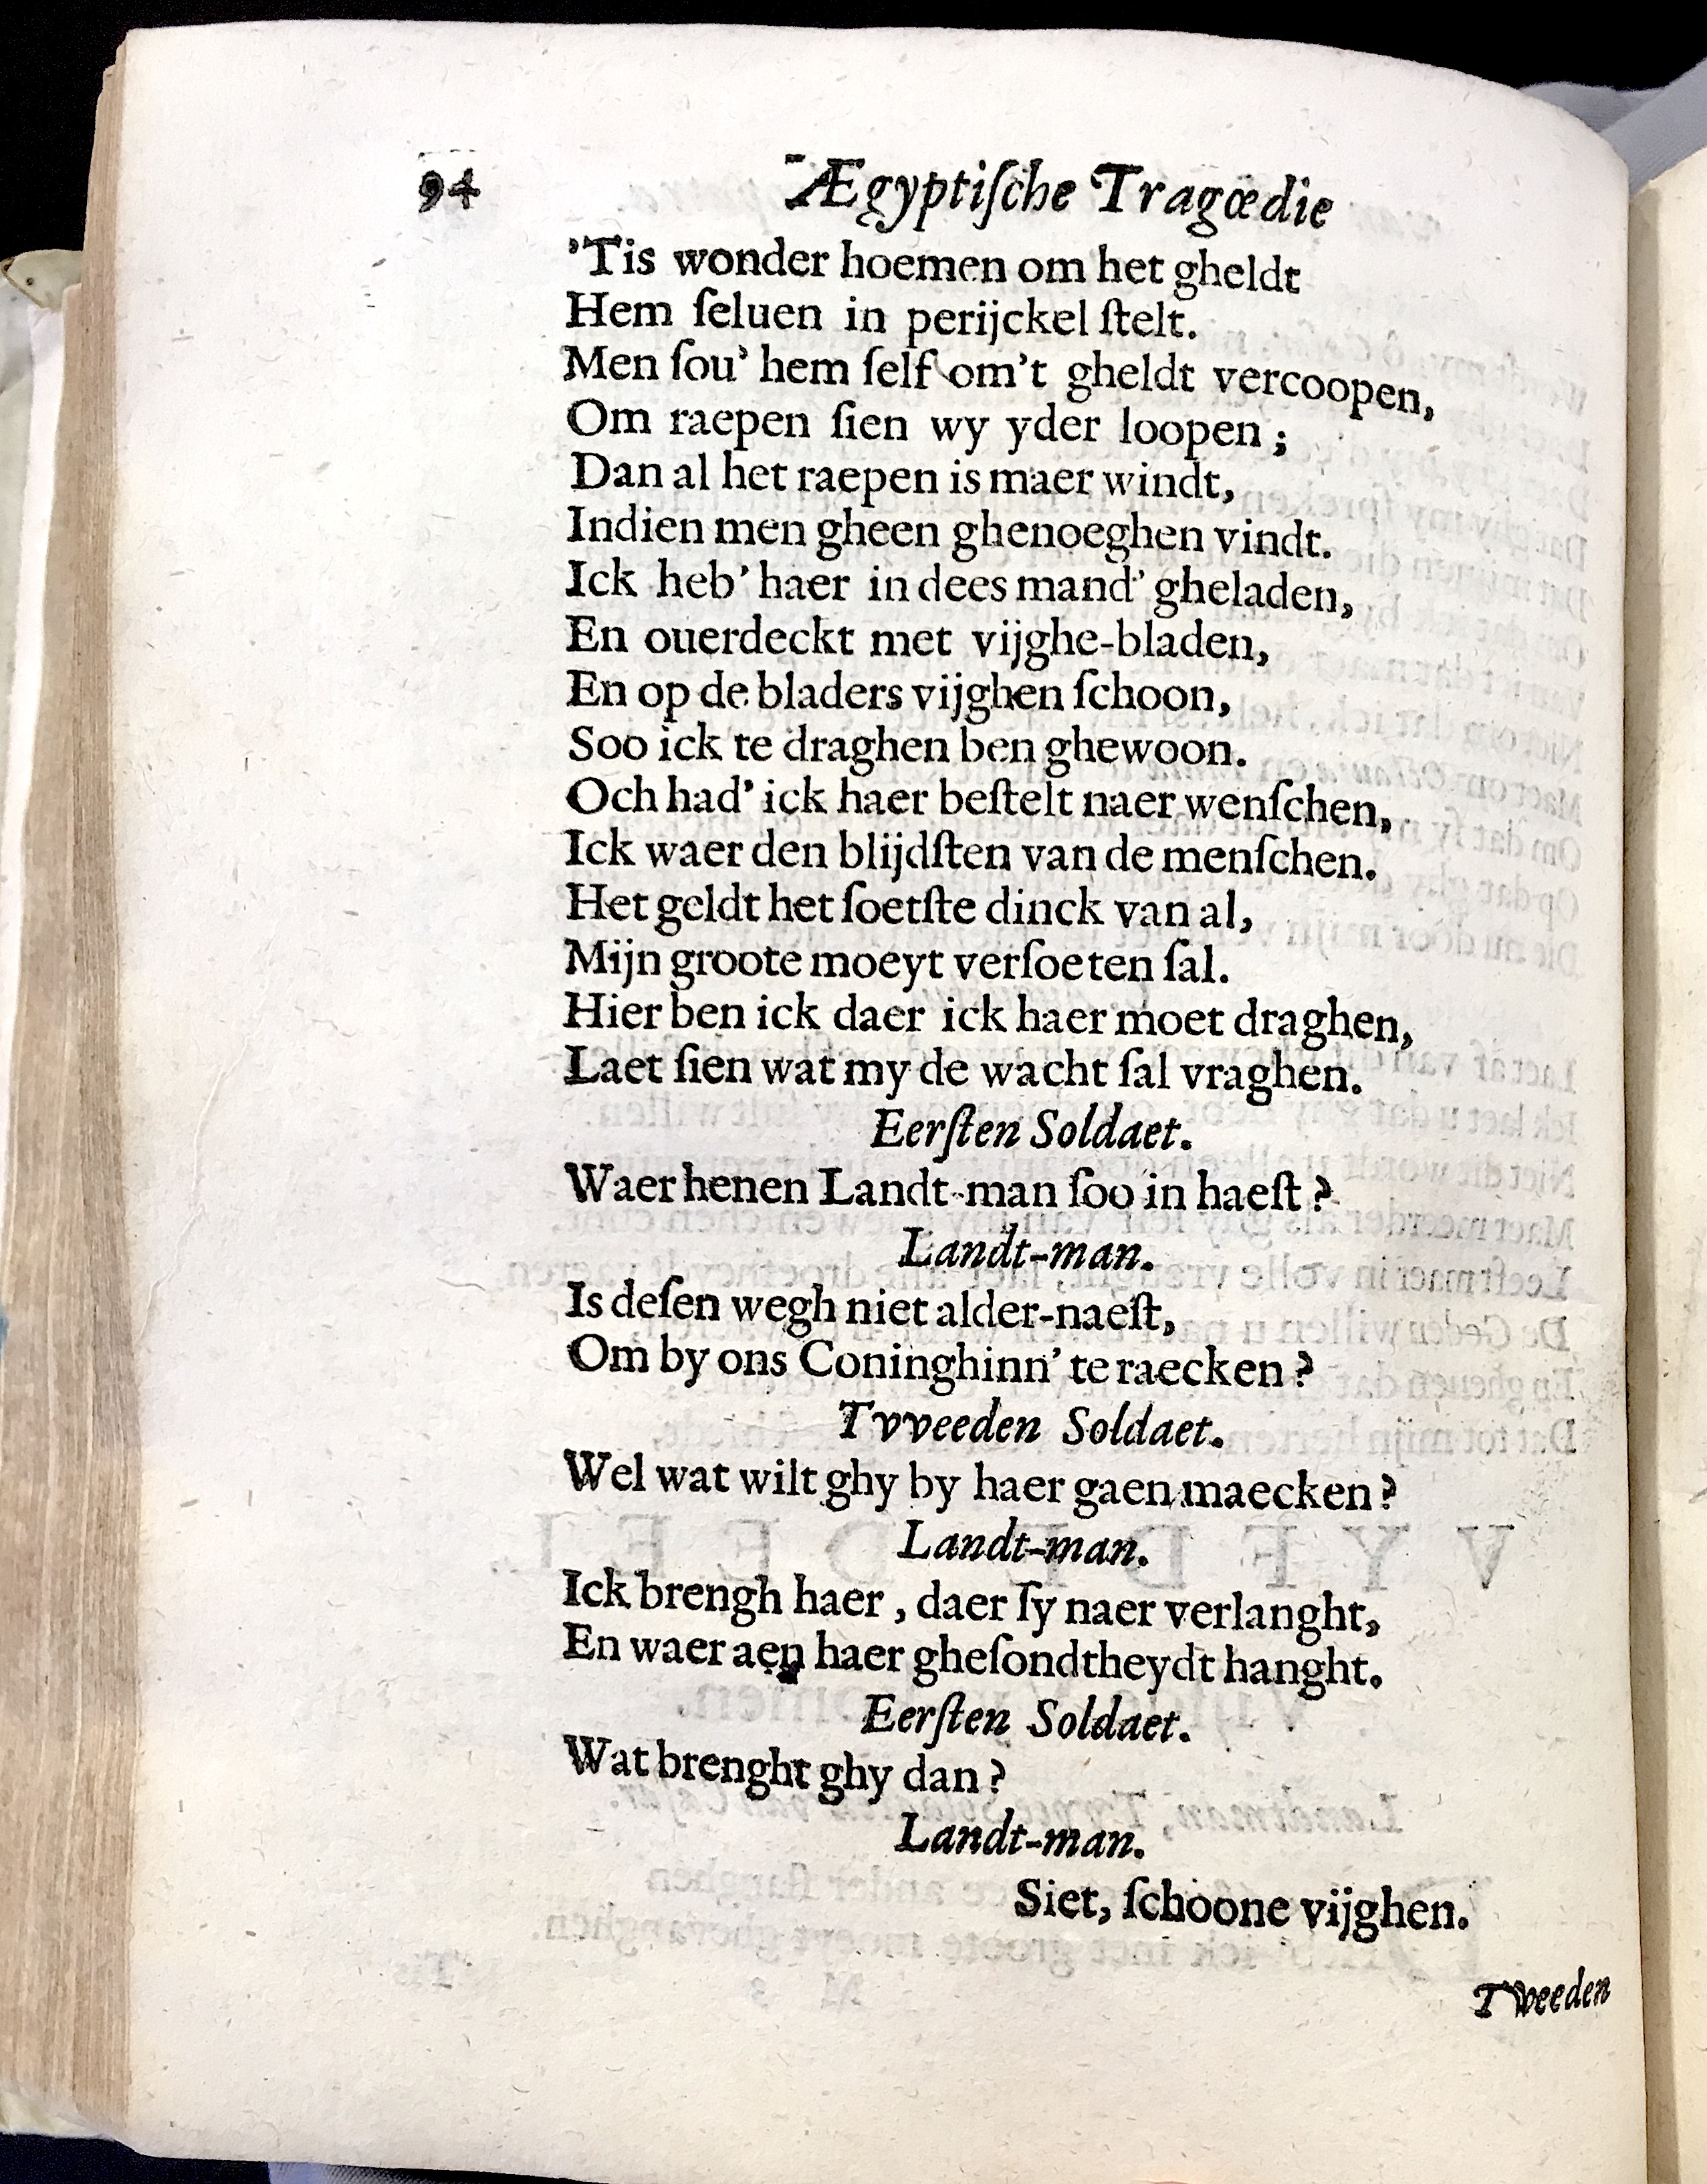 94 Ægyptiſche Tragœdie
’Tis wonder hoemen om het gheldt
Hem ſeluen in perijckel ſtelt.
Men ſou’ hem ſelf om’t gheldt vercoopen,
Om raepen ſien wy yder loopen ;
Dan al het raepen is maer windt,
Indien men gheen ghenoeghen vindt.
Ick heb’ haer in dees mand’ gheladen,
En ouerdeckt met vijghe-bladen,
En op de bladers vijghen ſchoon,
Soo ick te draghen ben ghewoon.
Och had’ ick haer beſtelt naer wenſchen,
Ick waer den blijdſten van de menſchen.
Het geldt het ſoetſte dinck van al,
Mijn groote moeyt verſoeten ſal.
Hier ben ick daer ick haer moet draghen,
Laet ſien wat my de wacht ſal vraghen.
Eerſten Soldaet.
Waer henen Landt-man ſoo in haeſt ?
Landt-man.
Is deſen wegh niet alder-naeſt,
Om by ons Coninghinn’ te raecken ?
Tvveeden Soldaet.
Wel wat wilt ghy by haer gaen maecken ?
Landt-man.
Ick brengh haer , daer ſy naer verlanght,
En waer aen haer gheſondtheydt hanght.
Eerſten Soldaet.
Wat brenght ghy dan ?
Landt-man.
Siet, ſchoone vijghen.
Tweeden